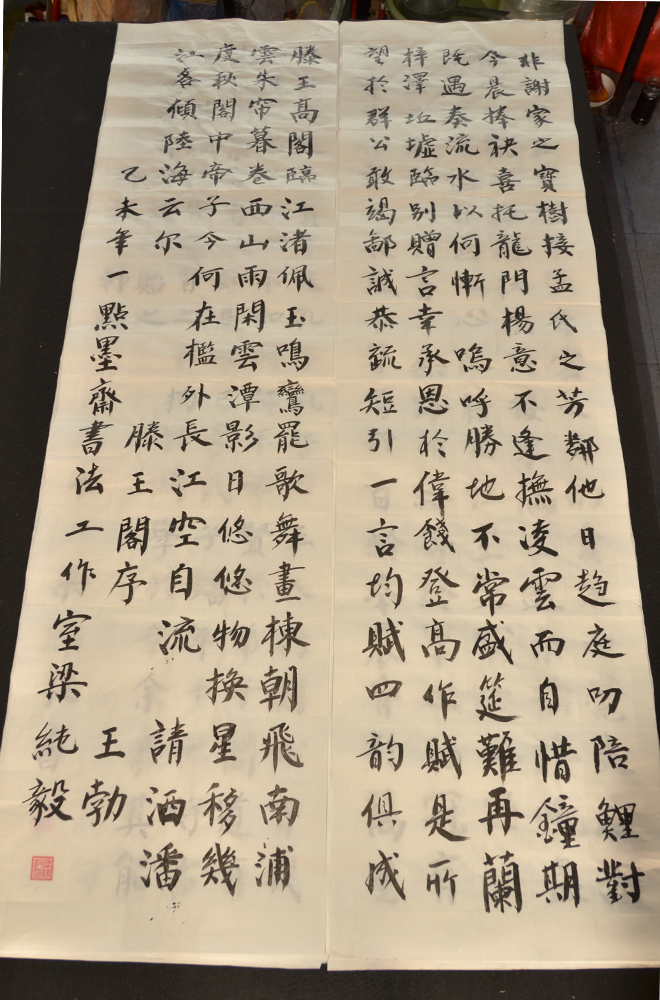 非謝家之寶樹接孟氏之芳鄰他日趍庭叨陪鯉對
今晨捧袂喜托龍門楊意不逢撫凌雲而自惜鐘期
既遇奏流水以何慚 嗚呼勝地不常盛筵難再蘭
梓澤坵墟臨別贈言幸承恩於偉餞登高作賦是所
望於群公敢竭鄙誠恭疏短引一言均賦四韵俱成
滕王高閣臨江渚佩玉鳴鸞罷歌舞畫棟朝飛南浦
雲朱帘暮卷西山雨閑雲潭影日悠悠物換星移幾
度秋閣中帝子今何在檻外長江空自流 請洒潘
江各傾陸海云尔 滕王閣序 王勃
乙未年一點墨齋書法工作室梁純毅